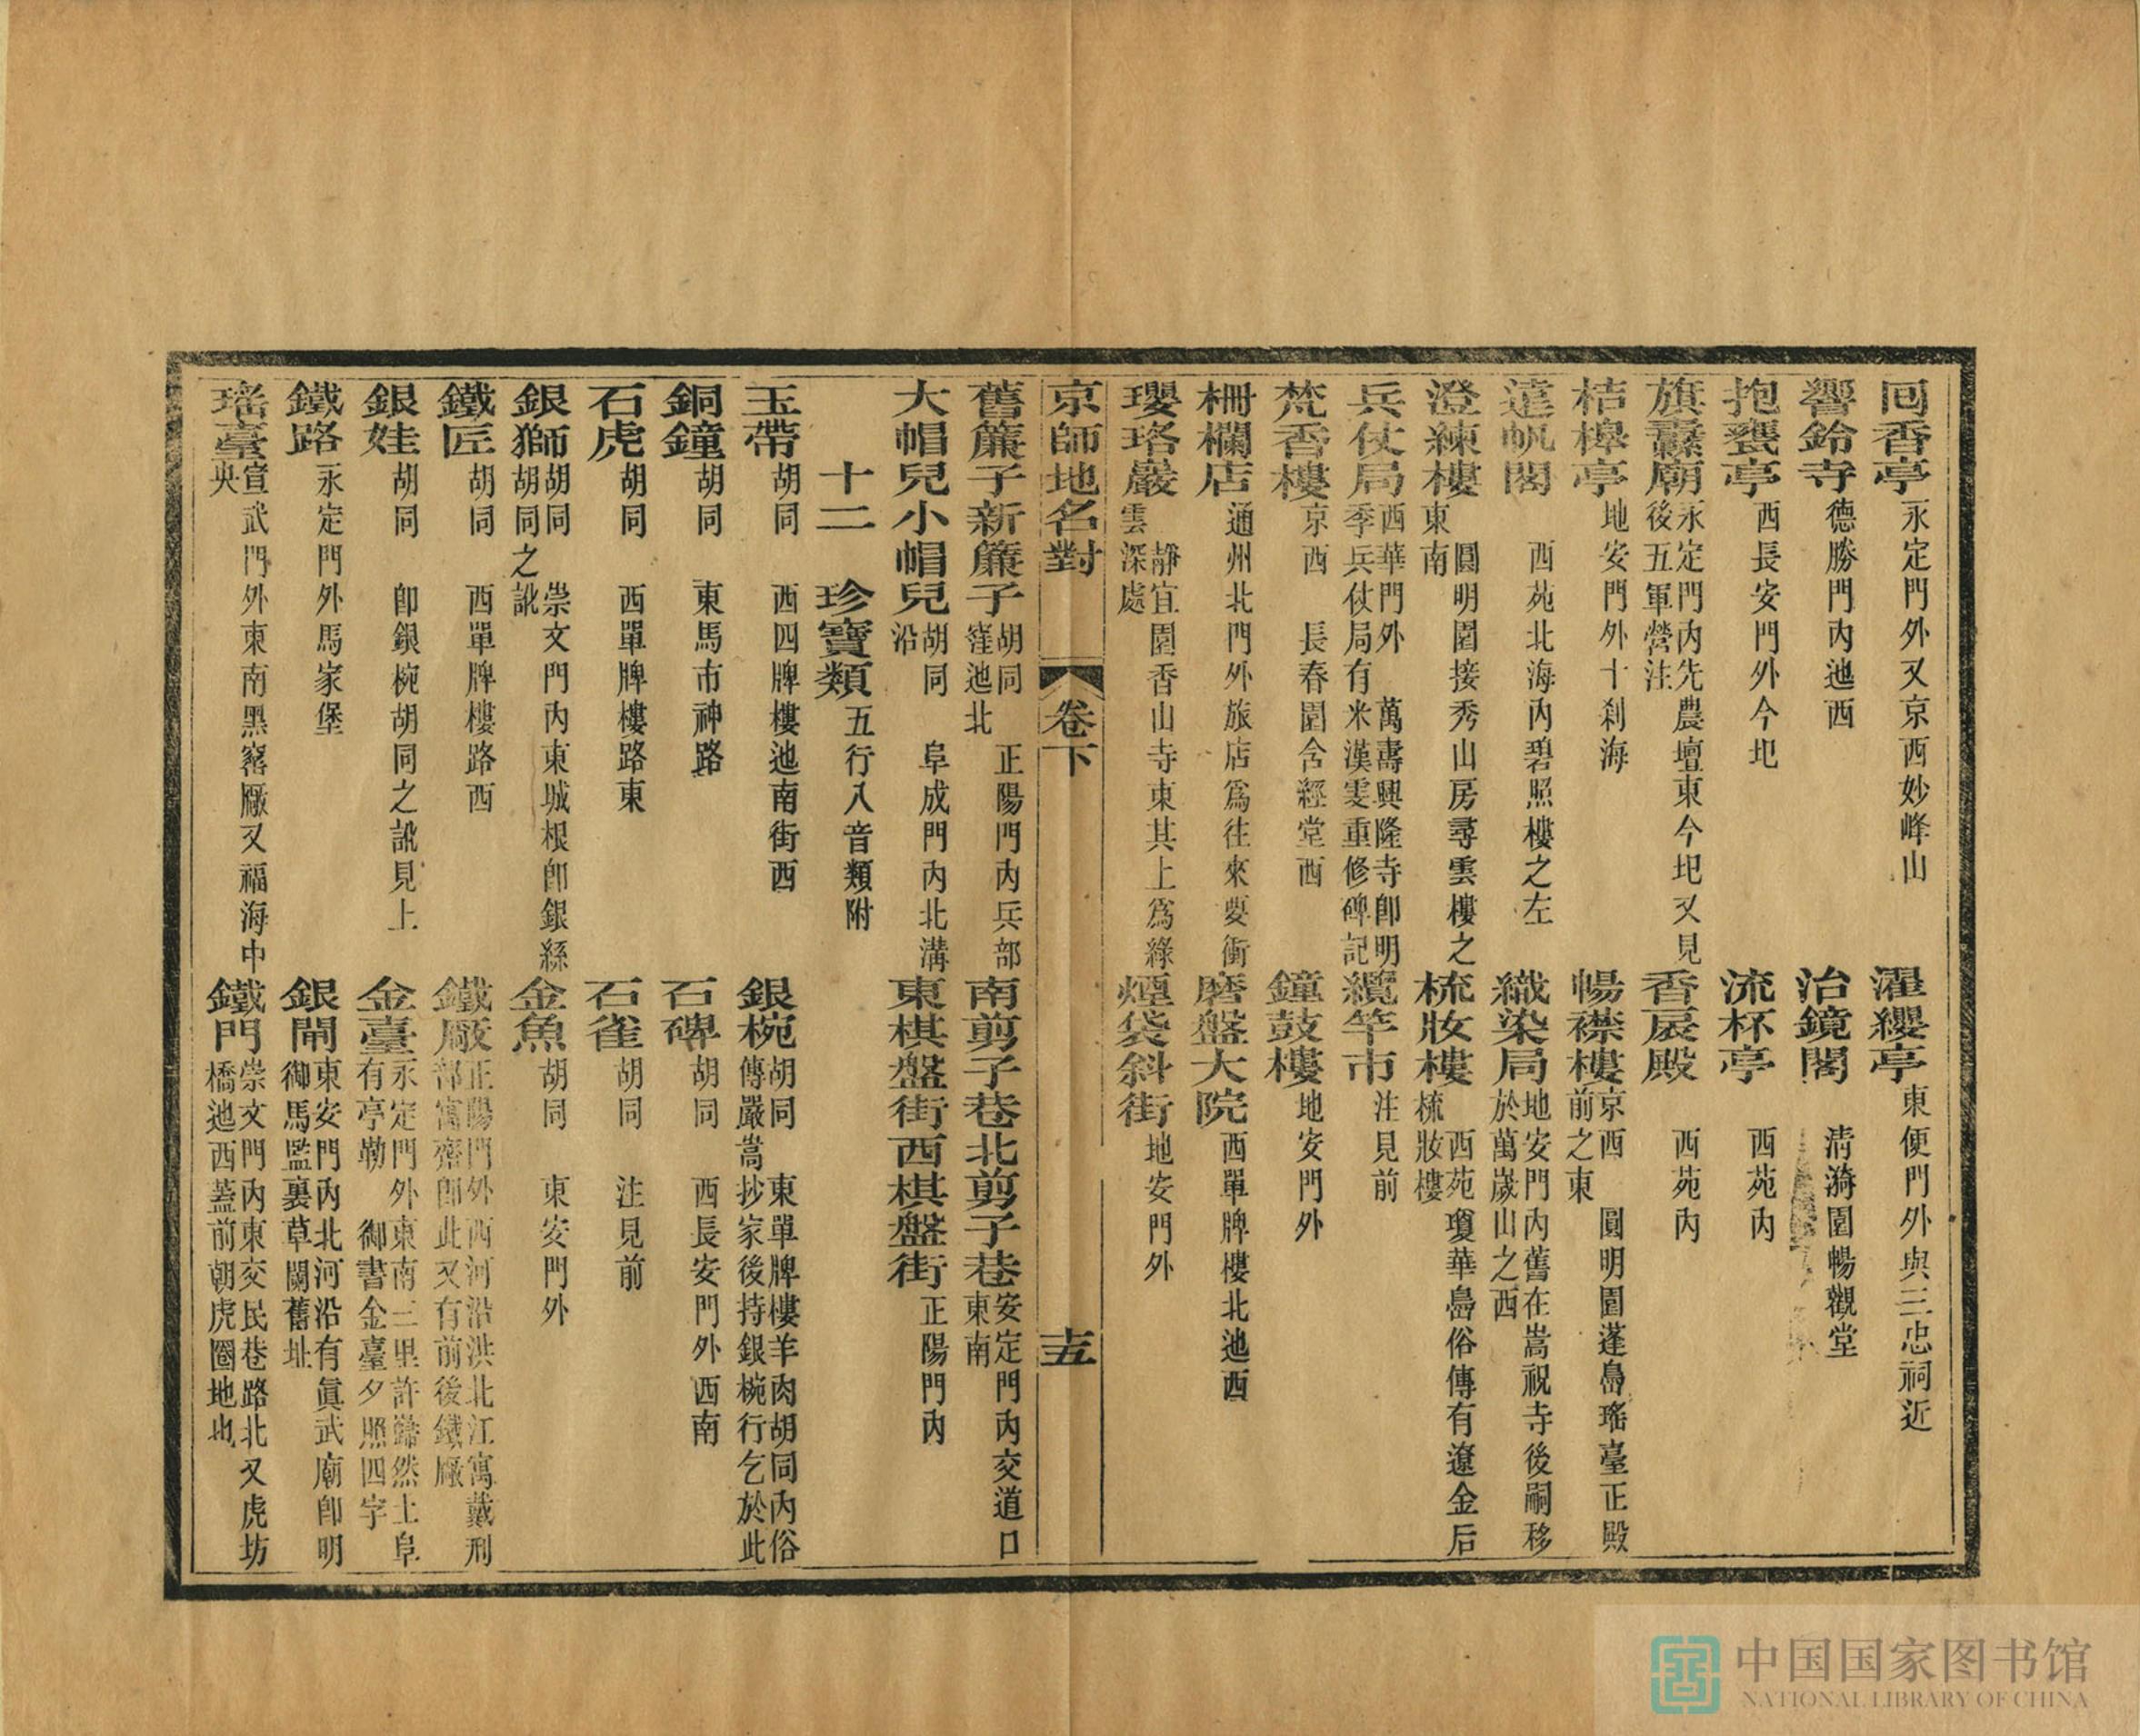 回香亭永定門外又京西妙峰山 濯纓亭東便門外與三忠祠近
響鈴寺德勝門內迤西 治鏡閣清漪園暢觀堂
抱甕亭西長安門外今圯 流杯亭西苑內
旗纛廟永定門內先農壇東今圯又見後五軍營注 香扆殿西苑內
桔槔亭地安門外十刹海 暢襟樓京西 圓明園蓬島瑤臺正殿前之東
遠帆閣西苑北海內碧照樓之左 織染局地安門內舊在嵩祝寺後嗣移於萬歲山之西
澄練樓圓明園接秀山房尋雲樓之東南 梳妝樓西苑瓊華島俗傳有遼金后梳妝樓
兵仗局西華門外 萬壽興隆寺卽明季兵仗局有米漢雯重修碑記 纜竿市注見前
梵香樓京西 長春園含經堂西 鐘鼓樓地安門外
柵欄店通州北門外旅店爲往來要衝 磨盤大院西單牌樓北迤西
瓔珞巖靜宜園香山寺東其上爲綠雲深處 煙袋斜街地安門外
京師地名對 卷下 十五
舊簾子新簾子胡同 正陽門內兵部窪迤北 南剪子巷北剪子巷安定門內交道口東南
大帽兒小帽兒胡同 阜成門內北溝沿 東棋盤街西棋盤街正陽門內
十二 珍寶類五行八音類附
玉帶胡同 西四牌樓迤南街西 銀椀胡同 東單牌樓羊肉胡同內俗傳嚴嵩抄家後持銀椀行乞於此
銅鐘胡同 東馬市神路 石碑胡同 西長安門外西南
石虎胡同 西單牌樓路東 石雀胡同 注見前
銀獅胡同 崇文門內東城根卽銀絲胡同之訛 金魚胡同 東安門外
鐵匠胡同 西單牌樓路西 鐵厰正陽門外西河沿洪北江寓戴刑部寓齋卽此又有前後鐵厰
銀娃胡同 卽銀椀胡同之訛見上 金臺永定門外東南三里許巋然土阜有亭勒 御書金臺夕照四字
鐵路永定門外馬家堡 銀閘東安門內北河沿有眞武廟卽明御馬監裏草闌舊址
瑤臺宣武門外東南黑窰厰又福海中央 鐵門崇文門內東交民巷路北又虎坊橋迤西蓋前朝虎圈地也
中国国家图书馆
NATIONAL LIBRARY OF CHINA